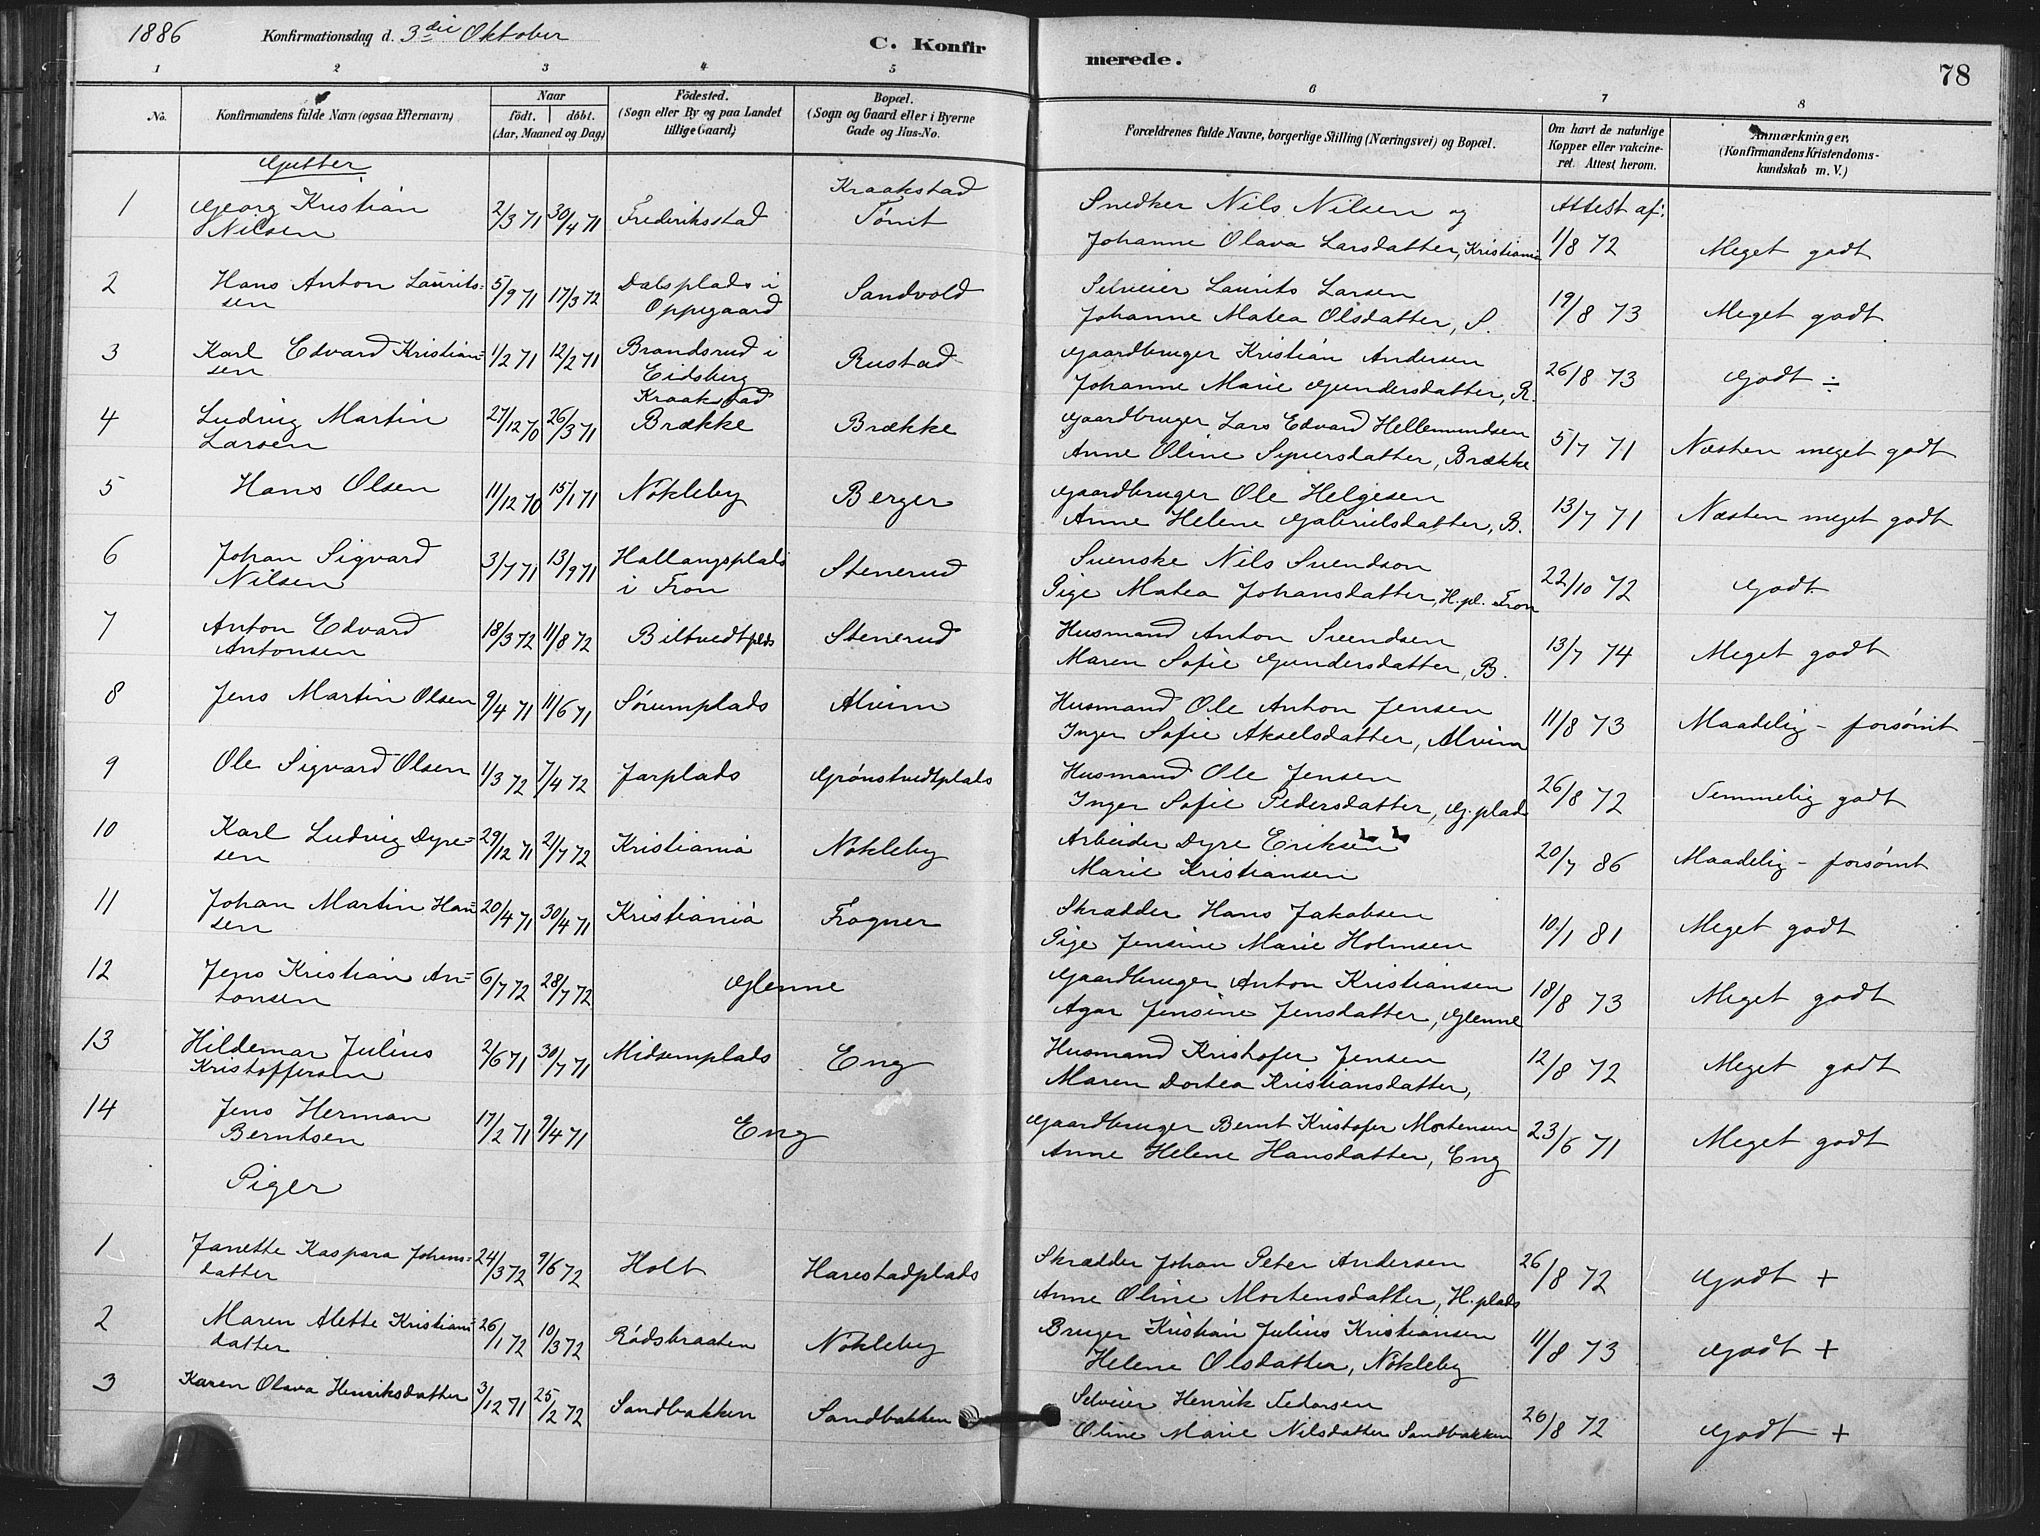 1886 Konfirmationsdag d. 3die Oktober C. Konfirmerede. 78
1 2 3 4 5 6 7 8
No. Konfirmandens fulde Navn (ogsaa Efternavn) Naar födt. döbt. (Aar, Maaned og Dag) Födested. (Sogn eller By og paa Landet tillige Gaard) Bopæl. (Sogn og Gaard eller i Byerne Gade og Hus-No.
Forældrenes fulde Navne, borgerlige Stilling (Næringsvei) og Bopæl. Om havt de naturlige Kopper eller vakcineret. Attest herom. Anmærkninger, (Konfirmandens Kristendomskundskab m. V.)
Gutter
1 Georg Kristian Nilsen 2/3 71 30/4 71 Frederiksstad Kraakstad Tømt Snedker Nils Nilsen og Johanne Olava Larsdatter, Kristiania Attest af: 1/8 72 Meget godt
2 Hans Anton Lauritssen 5/9 71 17/3 72 Dalsplads i Oppegaard Sandvold Selveier Laurits Larsen Johanne Matea Olsdatter, S. 19/8 73 Meget godt
3 Karl Edvard Kristiansen 1/2 71 12/2 71 Brandsrud i Eidsberg Rustad Gaardbruger Kristian Andersen Johanne Marie Gundersdatter, R. 26/8 73 Godt ÷
4 Ludvig Martin Larsen 27/12 70 26/3 71 Kraakstad Brække Brække Gaardbruger Lars Edvard Hellemundsen Anne Oline Syversdatter, Brække 5/7 71 Næsten meget godt
5 Hans Olsen 11/12 70 15/1 71 Nøkleby Berger Gaardbruger Ole Helgesen Anne Helene Gabrielsdatter, B. 13/7 71 Næsten meget godt
6 Johan Sigvard Nilsen 3/7 71 13/9 71 Hallangsplads i Fron Stenerud Svenske Nils Svendson Pige Matea Johansdatter, H.pl. Fron 22/10 72 Godt
7 Anton Edvard Antonsen 18/3 72 11/8 72 Biltvedtplds Stenerud Husmand Anton Svendsen Maren Sofie Gundersdatter, B. 13/7 74 Meget godt
8 Jens Martin Olsen 9/4 71 11/6 71 Sørumplads Alvim Husmand Ole Anton Jensen Inger Sofie Akselsdatter, Alvim 11/8 73 Maadelig - forsømt
9 Ole Sigvard Olsen 1/3 72 7/4 72 Jarplads Grønstvedtplads Husmand Ole Jensen Inger Sofie Pedersdatter, G.plads 26/8 72 Temmelig godt
10 Karl Ludvig Dyresen 29/12 71 2/7 72 Kristiania Nøkleby Arbeider Dyre Eriksen Marie Kristiansen 20/7 86 Maadelig - forsømt
11 Johan Martin Hansen 20/4 71 30/4 71 Kristiania Frogner Skrædder Hans Jakobsen Pige Jensine Marie Holmsen 10/1 81 Meget godt
12 Jens Kristian Antonsen 6/7 72 28/7 72 Glenne Gaardbruger Anton Kristiansen Agar Jensine Jensdatter, Glenne 18/8 73 Meget godt
13 Hildemar Julius Kristoffersen 2/6 71 30/7 71 Midsemplads Eng Husmand Kristofer Jensen Maren Dortea Kristiansdatter, 12/8 72 Meget godt
14 Jens Herman Berntsen 17/2 71 9/4 71 Eng Gaardbruger Bernt Kristofer Mortensen Anne Helene Hansdatter, Eng 23/6 71 Meget godt
Piger
1 Janette Kaspara Johansdatter 24/3 72 9/6 72 Holt Harestadplads Skrædder Johan Peter Andersen Anne Oline Mortensdatter, H.plads 26/8 72 Godt +
2 Maren Alette Kristiansdatter 26/1 72 10/3 72 Rødsbraaten Nøkleby Bruger Kristian Julius Kristiansen Helene Olsdatter, Nøkleby 11/8 73 Godt +
3 Karen Olava Henriksdatter 3/12 71 25/2 72 Sandbakken Sandbakken Selveier Henrik Pedersen Oline Marie Nilsdatter Sandbakken 26/8 72 Godt +